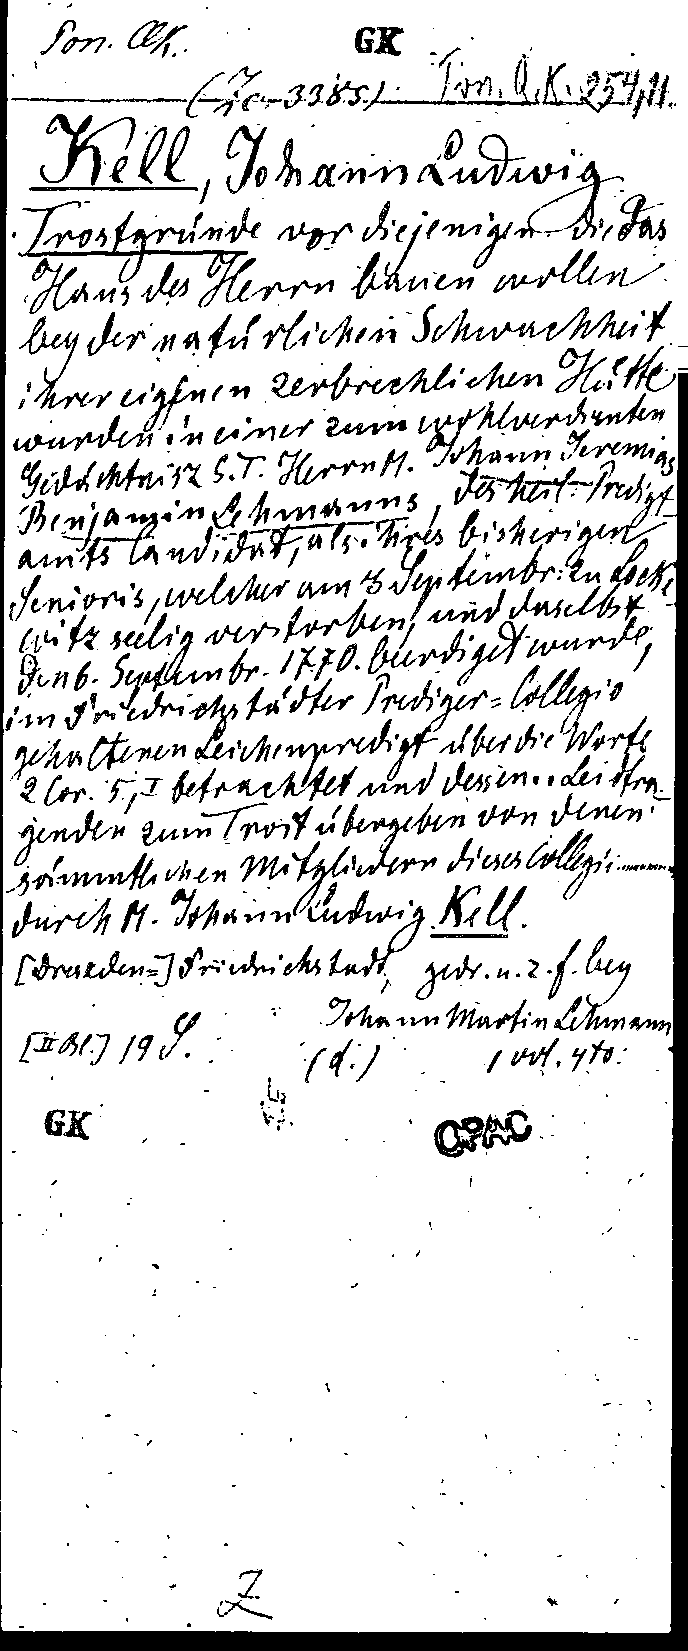 Pon. QK. GK
(Za 3385.) Pon. Q.K. 254,11.
Kell, Johann Ludwig
Trostgründe vor diejenigen die das
Haus des Herrn bauen wollen
bey der natürlichen Schwachheit
ihrer eigenen zerbrechlichen Hütte
wurden in einer zum wohlverdienten
Gedächtnisz S. T. Herrn M. Johann Jeremias
Benjamin Lehmanns, des heil. Predigt
amts Candidat, als ihres bisherigen
Senioris, welcher am 3 Septembr. zu Locke
witz seelig verstorben, und daselbst
den 6. Septembr. 1770. beerdiget wurde,
im Friedrichstädter Prediger=Collegio
gehaltenen Leichenpredigt über die Worte
2 Cor. 5, I betrachtet und dessen.. Leidtra-
genden zum Trost übergeben von denen
sämmtlichen Mitgliedern dieses Collegii
durch M. Johann Ludwig Kell.
[Dresden=] Friedrichstadt, gedr. u. z. f. bey
Johann Martin Lehmann
[II Bl.] 19 S. (d.) 1 vol. 4to.
GK OPAC
Z